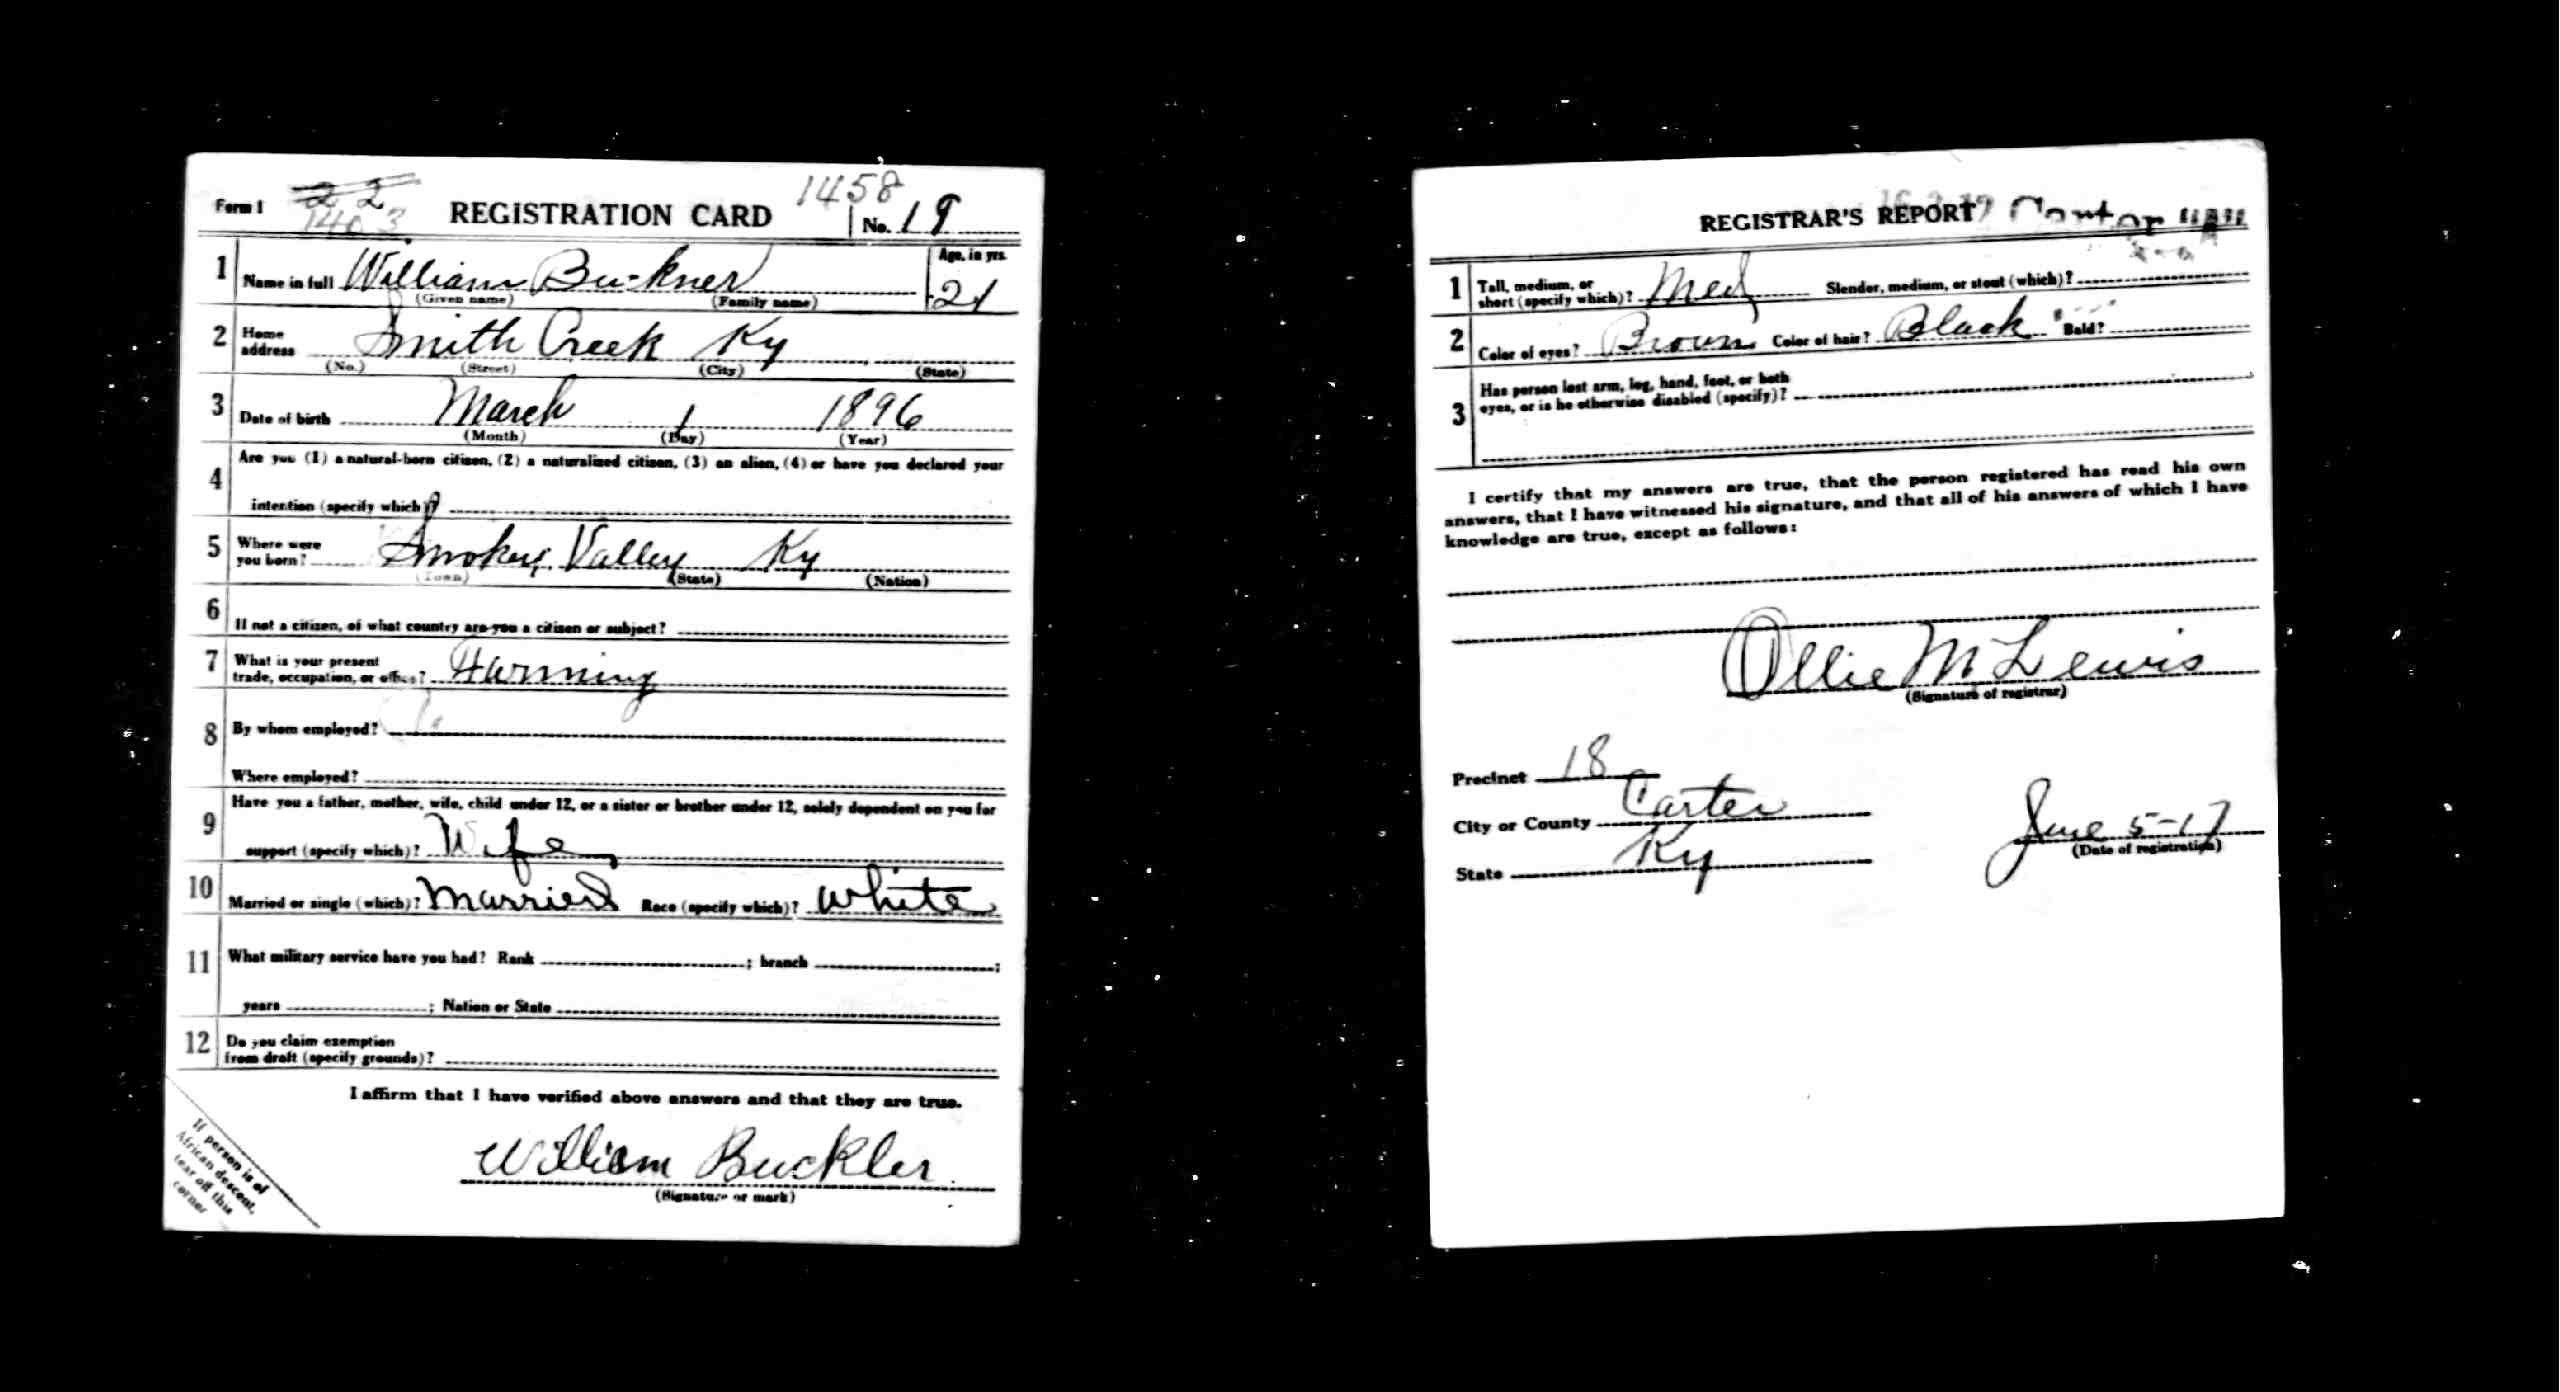 Form 1 22 REGISTRATION CARD 1458 No. 19
1403
1 Name in full William Buckner Age, in yrs. 21
(Given name) (Family name)
2 Home address Smith Creek Ky
(No.) (Street) (City) (State)
3 Date of birth March 1 1896
(Month) (Day) (Year)
4 Are you (1) a natural-born citizen, (2) a naturalized citizen, (3) an alien, (4) or have you declared your
intention (specify which)?
5 Where were you born? Smokey Valley Ky
(Town) (State) (Nation)
6 If not a citizen, of what country are you a citizen or subject?
7 What is your present trade, occupation, or office? Farming
8 By whom employed?
Where employed?
9 Have you a father, mother, wife, child under 12, or a sister or brother under 12, solely dependent on you for
support (specify which)? Wife
10 Married or single (which)? Married Race (specify which)? White
11 What military service have you had? Rank ; branch ;
years ; Nation or State
12 Do you claim exemption
from draft (specify grounds)?
I affirm that I have verified above answers and that they are true.
William Buckler
(Signature or mark)
If person is of
African descent,
tear off this
corner
REGISTRAR'S REPORT
1 Tall, medium, or
short (specify which)? Med Slender, medium, or stout (which)?
2 Color of eyes? Brown Color of hair? Black Bald?
3 Has person lost arm, leg, hand, foot, or both
eyes, or is he otherwise disabled (specify)?
I certify that my answers are true, that the person registered has read his own
answers, that I have witnessed his signature, and that all of his answers of which I have
knowledge are true, except as follows:
Ollie M Lewis
(Signature of registrar)
Precinct 18
City or County Carter
State Ky
June 5-17
(Date of registration)